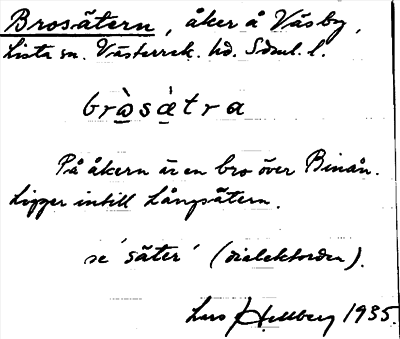 Brosätern, åker å Väsby,
Lista sn. Västerrek. hd. Sdml. l.
bròsä̀tra
På åkern är en bro över Binån.
Ligger intill Långsätern.
se 'säter' (dialektorden).
Lars Hellberg 1935.